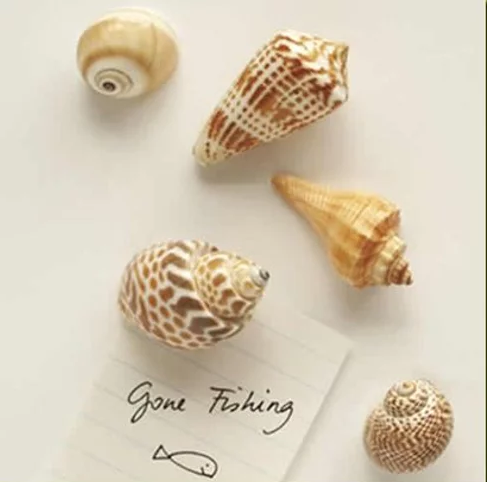 Gone Fishing